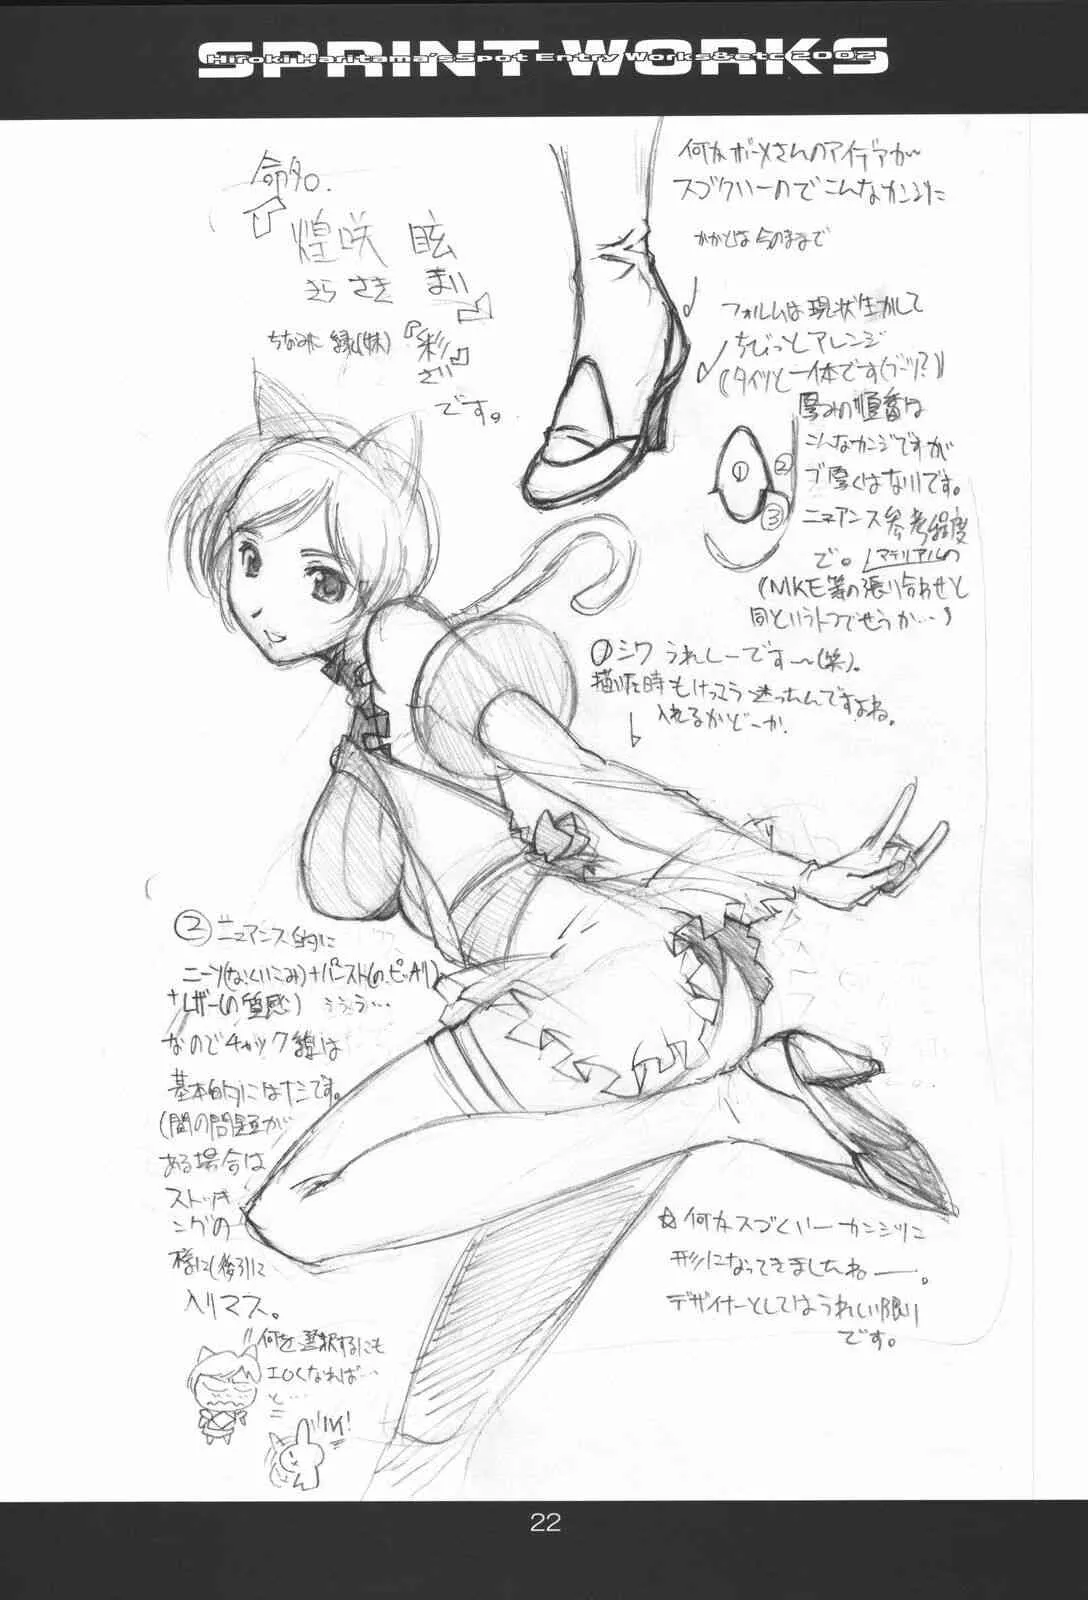 SPRINT WORKS
Hiroki Haritama's Spot Entry Works&etc 2002
命名。
煌咲 眩
きら さき まい
ちなみに 縁(妹)『彩』
さい
です。
何かボーメさんのアイデアが
スゴクいーのでこんなカンジに
かかとは今のままで
フォルムは現状生かして
ちびっとアレンジ
(タイツと一体です(ブーツ?))
厚みの順番は
こんなカンジですが
ブ厚くはないです。
ニュアンス参考程度
で。 マテリアルの
(MKE等の張り合わせと
同というトコでせうか…)
① ② ③
①シワ うれしーです〜(笑)。
描いた時もけっこう迷ったんですよね。
入れるかどーか
② ニュアンス的に
ニーソ(な、くいこみ)+パンスト(の、ピッタリ)
+レザー(の質感) ううう…
なのでチャック線は
基本的にはナシです。
(間の問題が
ある場合は
ストッキ
ングの
様に(後ろ)に
入りマス。
"何を選択するにも
エロくなれば…
と…
ハイ!
☆何かスゴくいーカンジに
形になってきましたねー。
デザイナーとしてはうれしい限り
です。
22